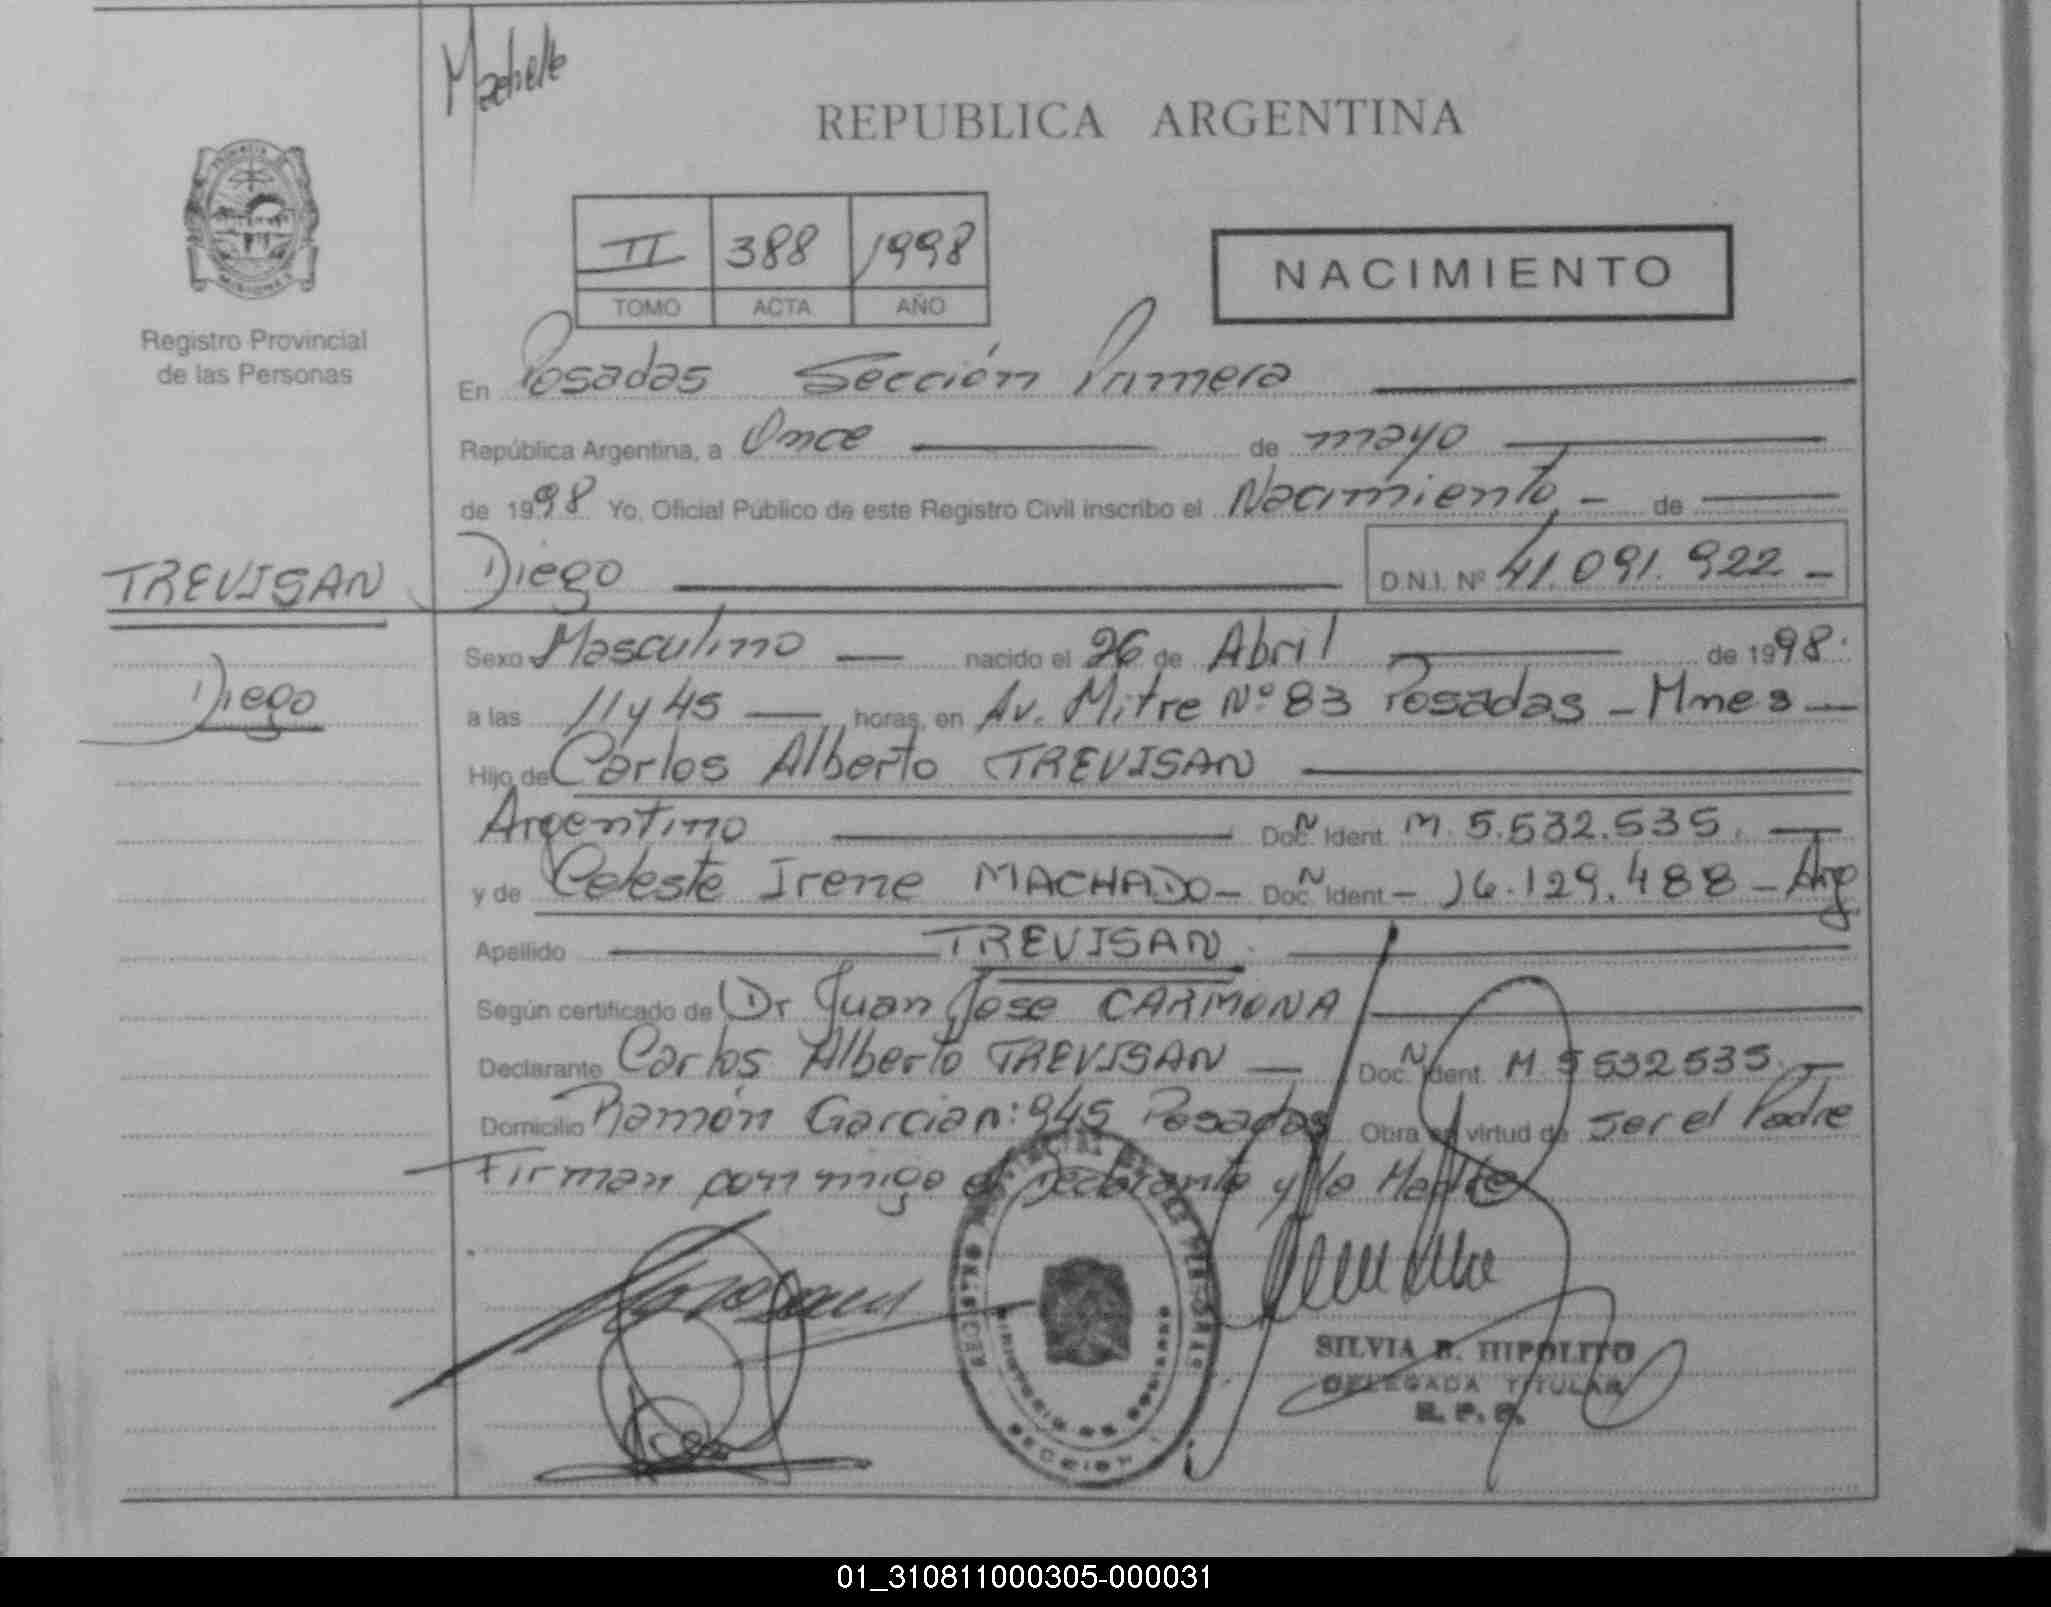 REPUBLICA ARGENTINA
II 388 1998
TOMO ACTA AÑO
NACIMIENTO
Registro Provincial
de las Personas
En Posadas Sección Primera
República Argentina, a Once de mayo
de 1998 Yo, Oficial Público de este Registro Civil inscribo el Nacimiento, - de
TREVISAN
Diego
Diego D.N.I. Nº 41.091.922 -
Sexo Masculino nacido el 26 de Abril de 1998.
a las 11 y 45 horas, en Av. Mitre Nº 83 Posadas - Mnes
Hijo de Carlos Alberto TREVISAN
Argentino Doc. N Ident. M. 5.532.535.
y de Celeste Irene MACHADO - Doc. N Ident - 16.129.488 - Arg
Apellido TREVISAN
Según certificado de Dr Juan Jose CARMONA
Declarante Carlos Alberto TREVISAN Doc. N Ident. M 5532535.
Domicilio Ramón Garcia n: 945 Posadas Obra en virtud de ser el Padre
Firman con migo el Declarante y la Madre
SECCION 1
SILVIA R. HIPOLITO
DELEGADA TITULAR
R. P. P.
01_310811000305-000031